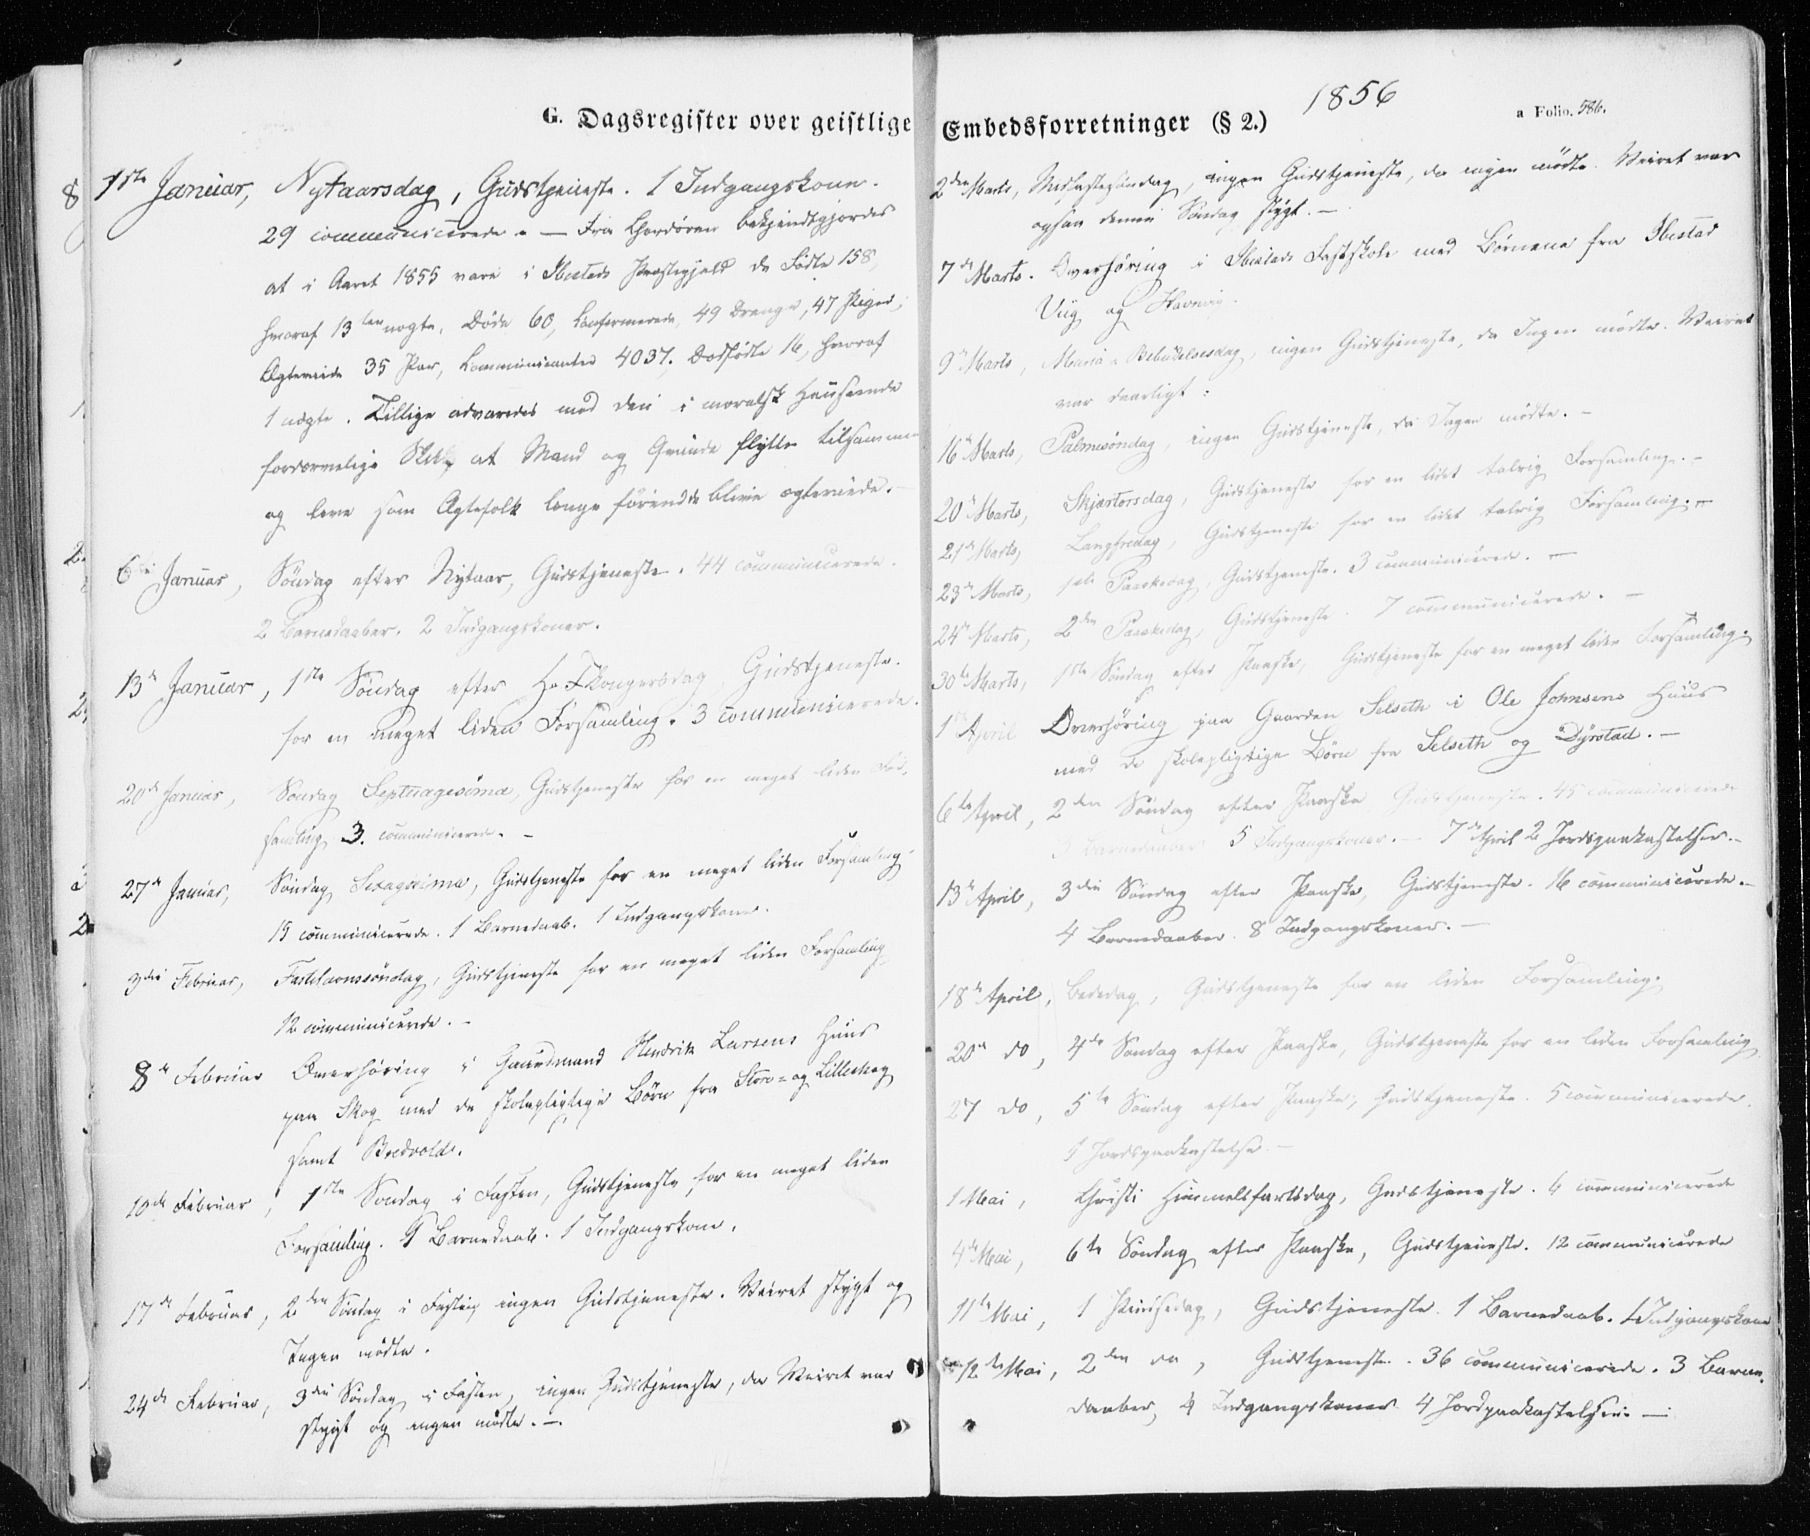 G. Dagsregister over geistlige
1ste Januar, Nytaarsdag, Gudstjeneste. 1 Indgangskone.
29 communicerede. — Fra Chordøren bekjendtgjordes
at i Aaret 1855 vare i Ibestads Præstegjeld de Fødte 158,
hvoraf 13 uægte, Døde 60, Confirmerede, 49 Drenge, 47 Piger,
Ægteviede 35 Par, Communicanter 4037. Dødfødte 16, hvoraf
1 uægte. Tillige advaredes mod den i moralsk Henseende
fordærvelige Skik, at Mand og Qvinde flytte tilsammen
og leve som Ægtefolk længe førend de blive ægteviede. —
6te Januar, Søndag efter Nytaar, Gudstjeneste. 44 communicerede.
2 Barnedaaber. 2 Indgangskoner.
13de Januar, 1ste Søndag efter H. 3 Kongersdag, Gudstjeneste.
for en meget liden Forsamling. 3 communicerede.
20de Januar, Søndag Septuagesima, Gudstjeneste for en meget liden For-
samling, 3. communicerede. —
27de Januar, Søndag Sexagesima, Gudstjeneste for en meget liden Forsamling.
15 communicerede. 1 Barnedaab. 1 Indgangskone.
3die Februar, Fastelavnssøndag, Gudstjeneste for en meget liden Forsamling
12 communicerede. —
8de Februar Overhøring i Gaardmand Hendrik Larsens Huus
paa Skog med de skolepligtige Børn fra Store- og Lilleskog
samt Bredvold.
10de Februar, 1ste Søndag i Fasten, Gudstjeneste for en meget liden
Forsamling. 1 Barnedaab. 1 Indgangskone.
17de Februar, 2den Søndag i Fasten, ingen Gudstjeneste. Veiret stygt og
Ingen mødte.
24de Februar, 3die Søndag i Fasten, ingen Gudstjeneste, da Veiret var
stygt og ingen mødte. —
Embedsforretninger (§ 2.) 1856 a Folio. 586.
2den Marts, Midfastesøndag, ingen Gudstjeneste, da ingen mødte. Veiret var
ogsaa denne Søndag stygt. —
7de Marts. Overhøring i Ibestads Fastskole med Børnene fra Ibestad
Vig og Havnvig.
9de Marts, Mariæ Bebudelsesdag, ingen Gudstjeneste, da Ingen mødte. Veiret
var daarligt.
16de Marts, Palmesøndag, ingen Gudstjeneste, da Ingen mødte. —
20de Marts, Skjærtorsdag, Gudstjeneste for en lidet talrig Forsamling. —
21de Marts, Langfredag, Gudstjeneste for en lidet talrig Forsamling. —
23de Marts, Paaskedag, Gudstjeneste. 3 communicerede. —
24de Marts, 2den Paaskedag, Gudstjeneste. 7 communicerede. —
30te Marts, 1ste Søndag efter Paaske, Gudstjeneste for en meget liden Forsamling.
1ste April Overhøring paa Gaarden Selseth i Ole Johnsens Huus
med de skolepligtige Børn fra Selseth og Dyrstad. —
6te April, 2den Søndag efter Paaske Gudstjeneste. 45 communicerede
3 Barnedaaber 5 Indgangskoner. — 7de April 2 Jordspaakastelser. —
13de April, 3die Søndag efter Paaske, Gudstjeneste. 16 communicerede. —
4 Barnedaaber. 8 Indgangskoner. —
18de April, Bededag, Gudstjeneste for en liden Forsamling.
20de do, 4de Søndag efter Paaske, Gudstjeneste for en liden Forsamling
27 do, 5te Søndag efter Paaske, Gudstjeneste. 5 communicerede.
1 Jordspaakastelse. —
1 Mai, Christi Himmelfartsdag, Gudstjeneste. 4 communicerede
4de Mai, 6te Søndag efter Paaske, Gudstjeneste. 12 communicerede
11te Mai, 1 Pindsedag, Gudstjeneste. 1 Barnedaab. 1 Indgangskone
12te Mai, 2den do, Gudstjeneste. 36 communicerede. 3 Barne-
daaber, 4 Indgangskoner 4 Jordpaakastelser. —